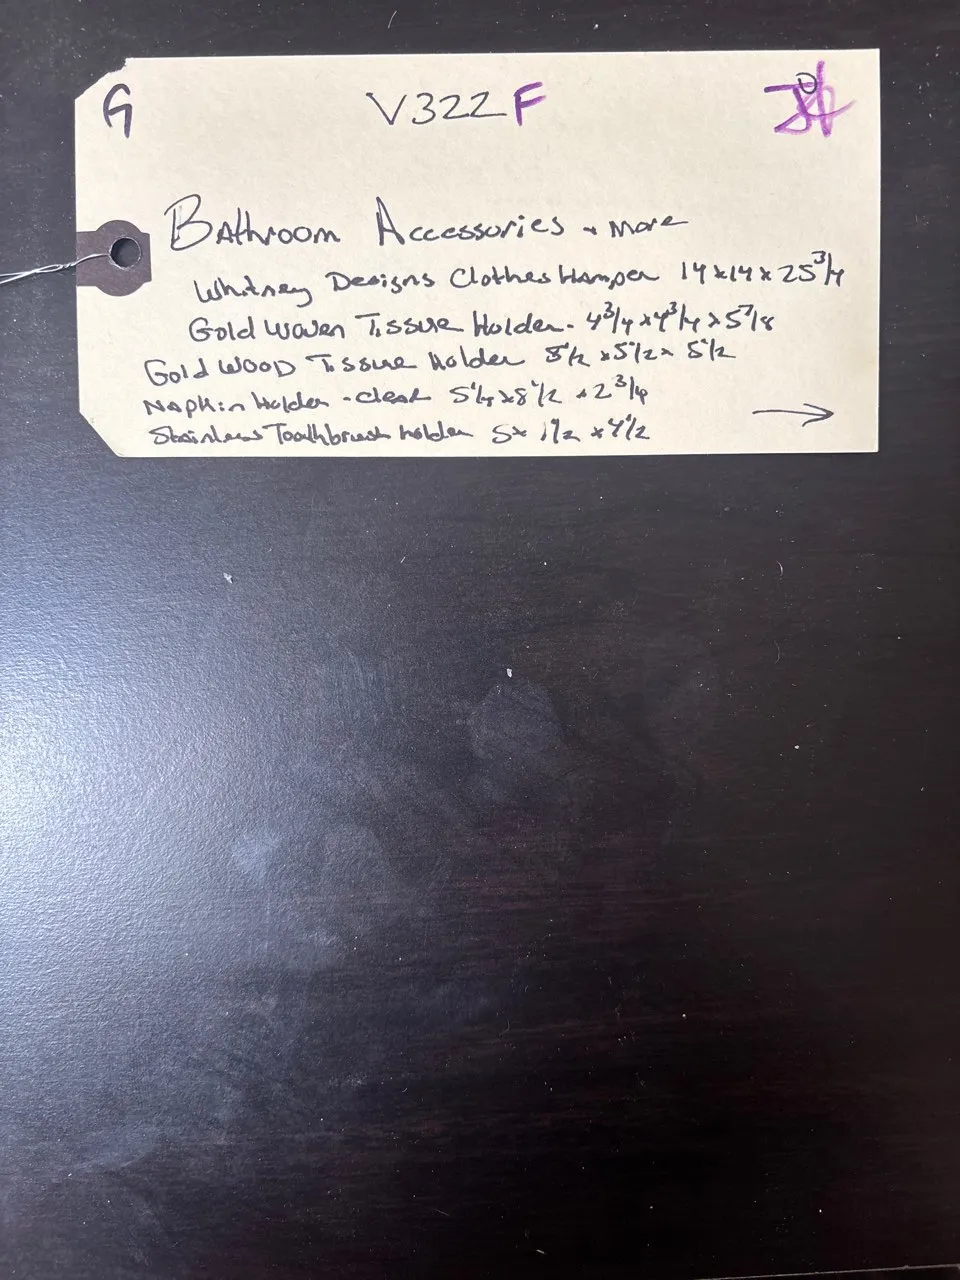 G V322F
Bathroom Accessories + More
Whitney Designs Clothes Hamper 14x14x25 3/4
Gold Woven Tissue Holder - 4 3/4 x 4 3/4 x 5 7/8
Gold Wood Tissue Holder 5 1/2 x 5 1/2 x 5 1/2
Napkin Holder - clear 5 1/4 x 8 1/2 x 2 3/4
Stainless Toothbrush holder 5 x 1 1/2 x 4 1/2
→